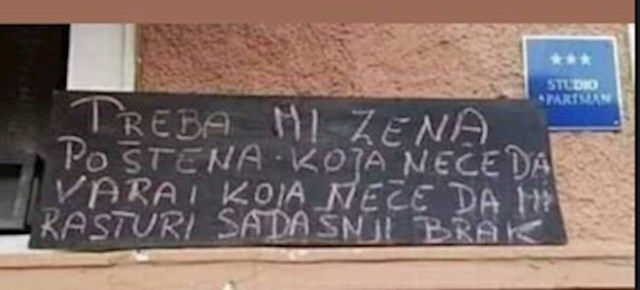 TREBA MI ŽENA
POŠTENA. KOJA NEČE DA
VARA I KOJA NEČE DA MI
RASTURI SADAŠNJI BRAK
★★★
STUDIO
APARTMAN